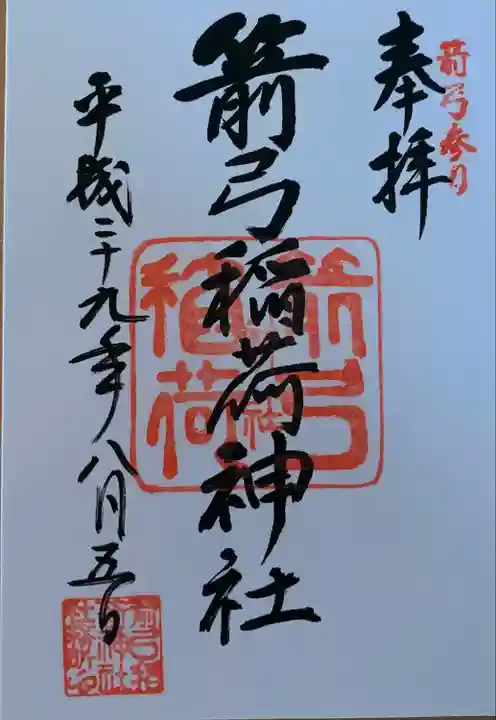 箭弓参り
奉拝
箭弓稲荷神社
箭弓
稲荷
神社
平成二十九年八月五日